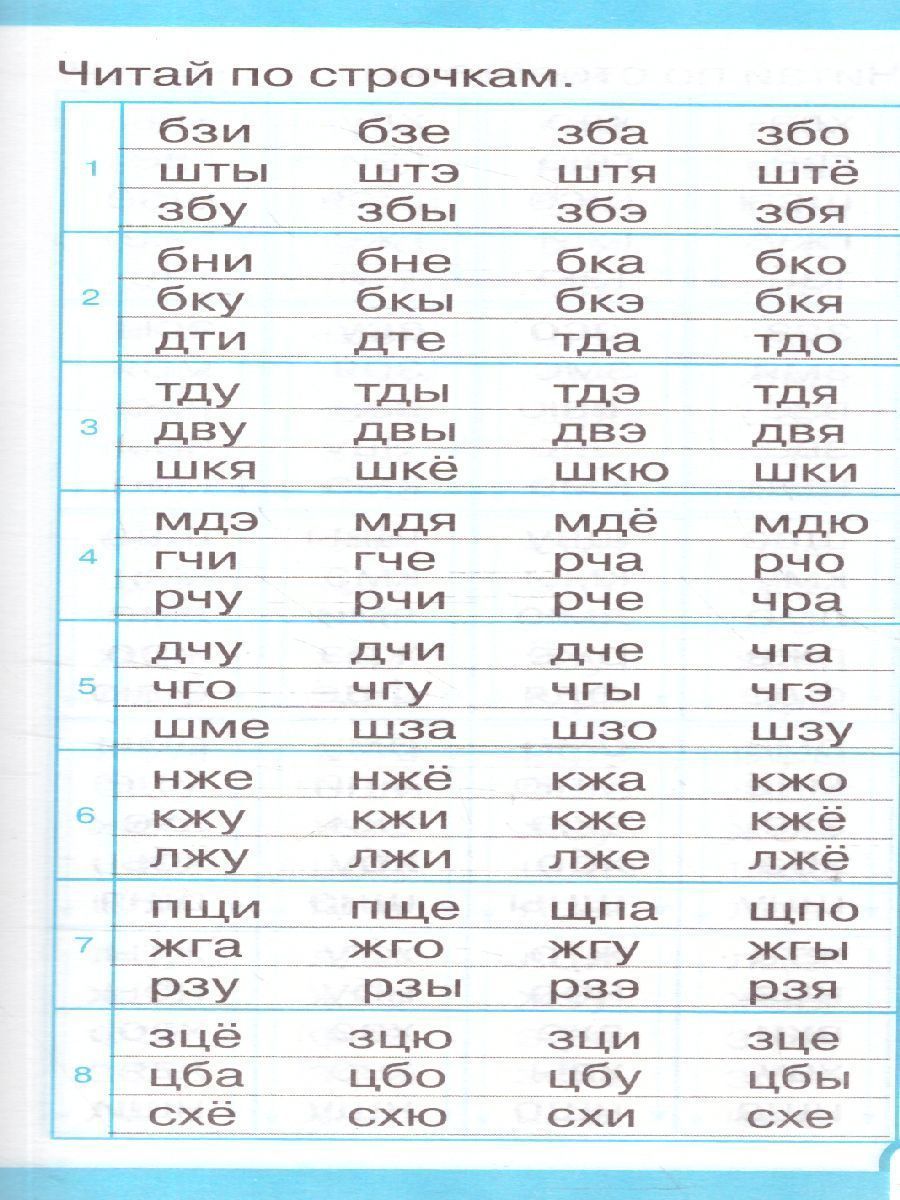 Читай по строчкам.
бзи бзе зба збо
1 шты штэ штя штё
збу збы збэ збя
бни бне бка бко
2 бку бкы бкэ бкя
дти дте тда тдо
тду тды тдэ тдя
3 дву двы двэ двя
шкя шкё шкю шки
мдэ мдя мдё мдю
4 гчи гче рча рчо
рчу рчи рче чра
дчу дчи дче чга
5 чго чгу чгы чгэ
шме шза шзо шзу
нже нжё кжа кжо
6 кжу кжи кже кжё
лжу лжи лже лжё
пщи пще щпа щпо
7 жга жго жгу жгы
рзу рзы рзэ рзя
зцё зцю зци зце
8 цба цбо цбу цбы
схё схю схи схе